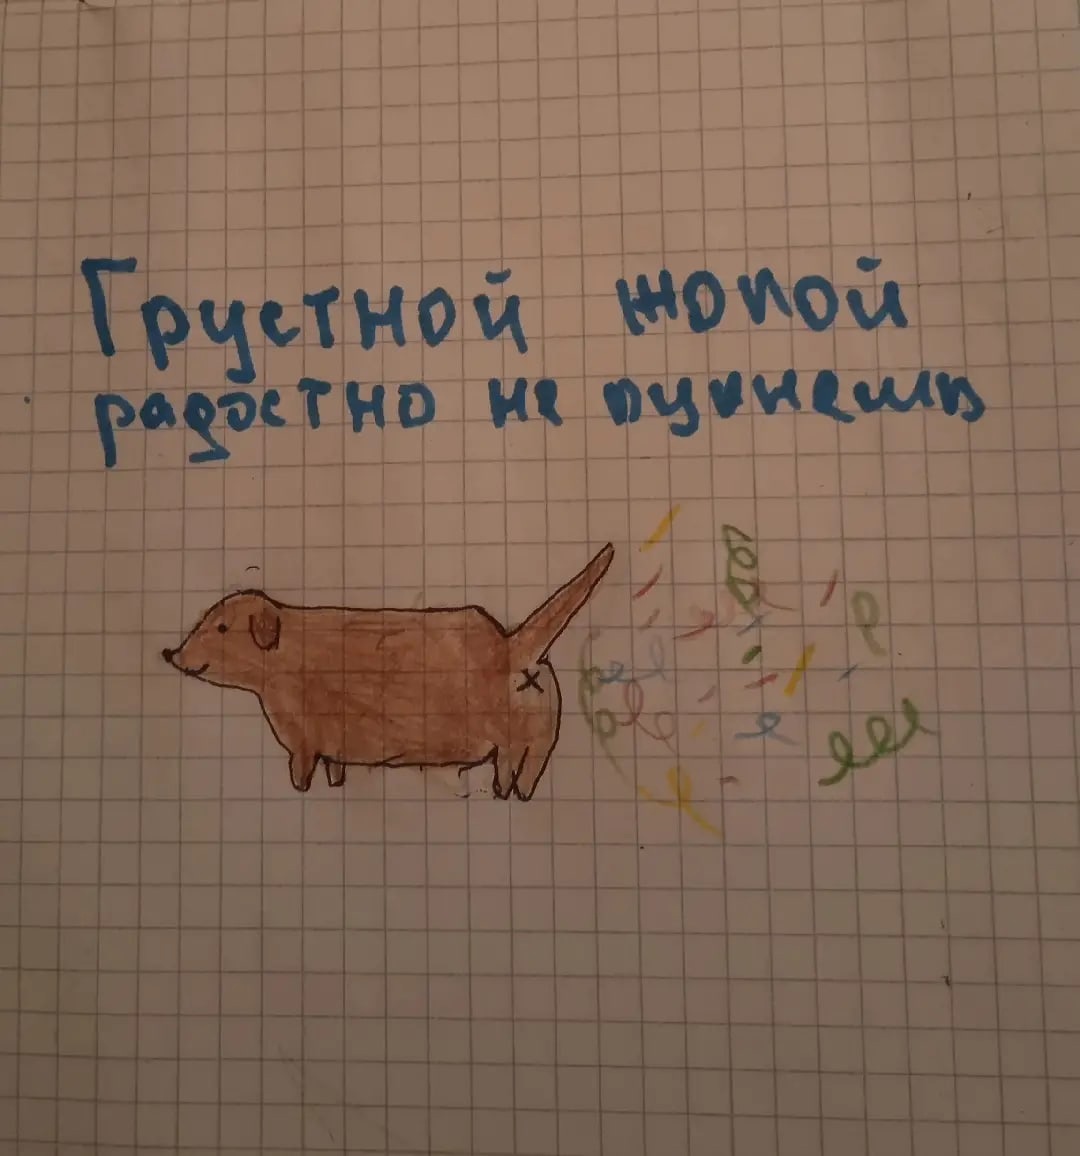 Грустной жопой
радостно не пукнешь